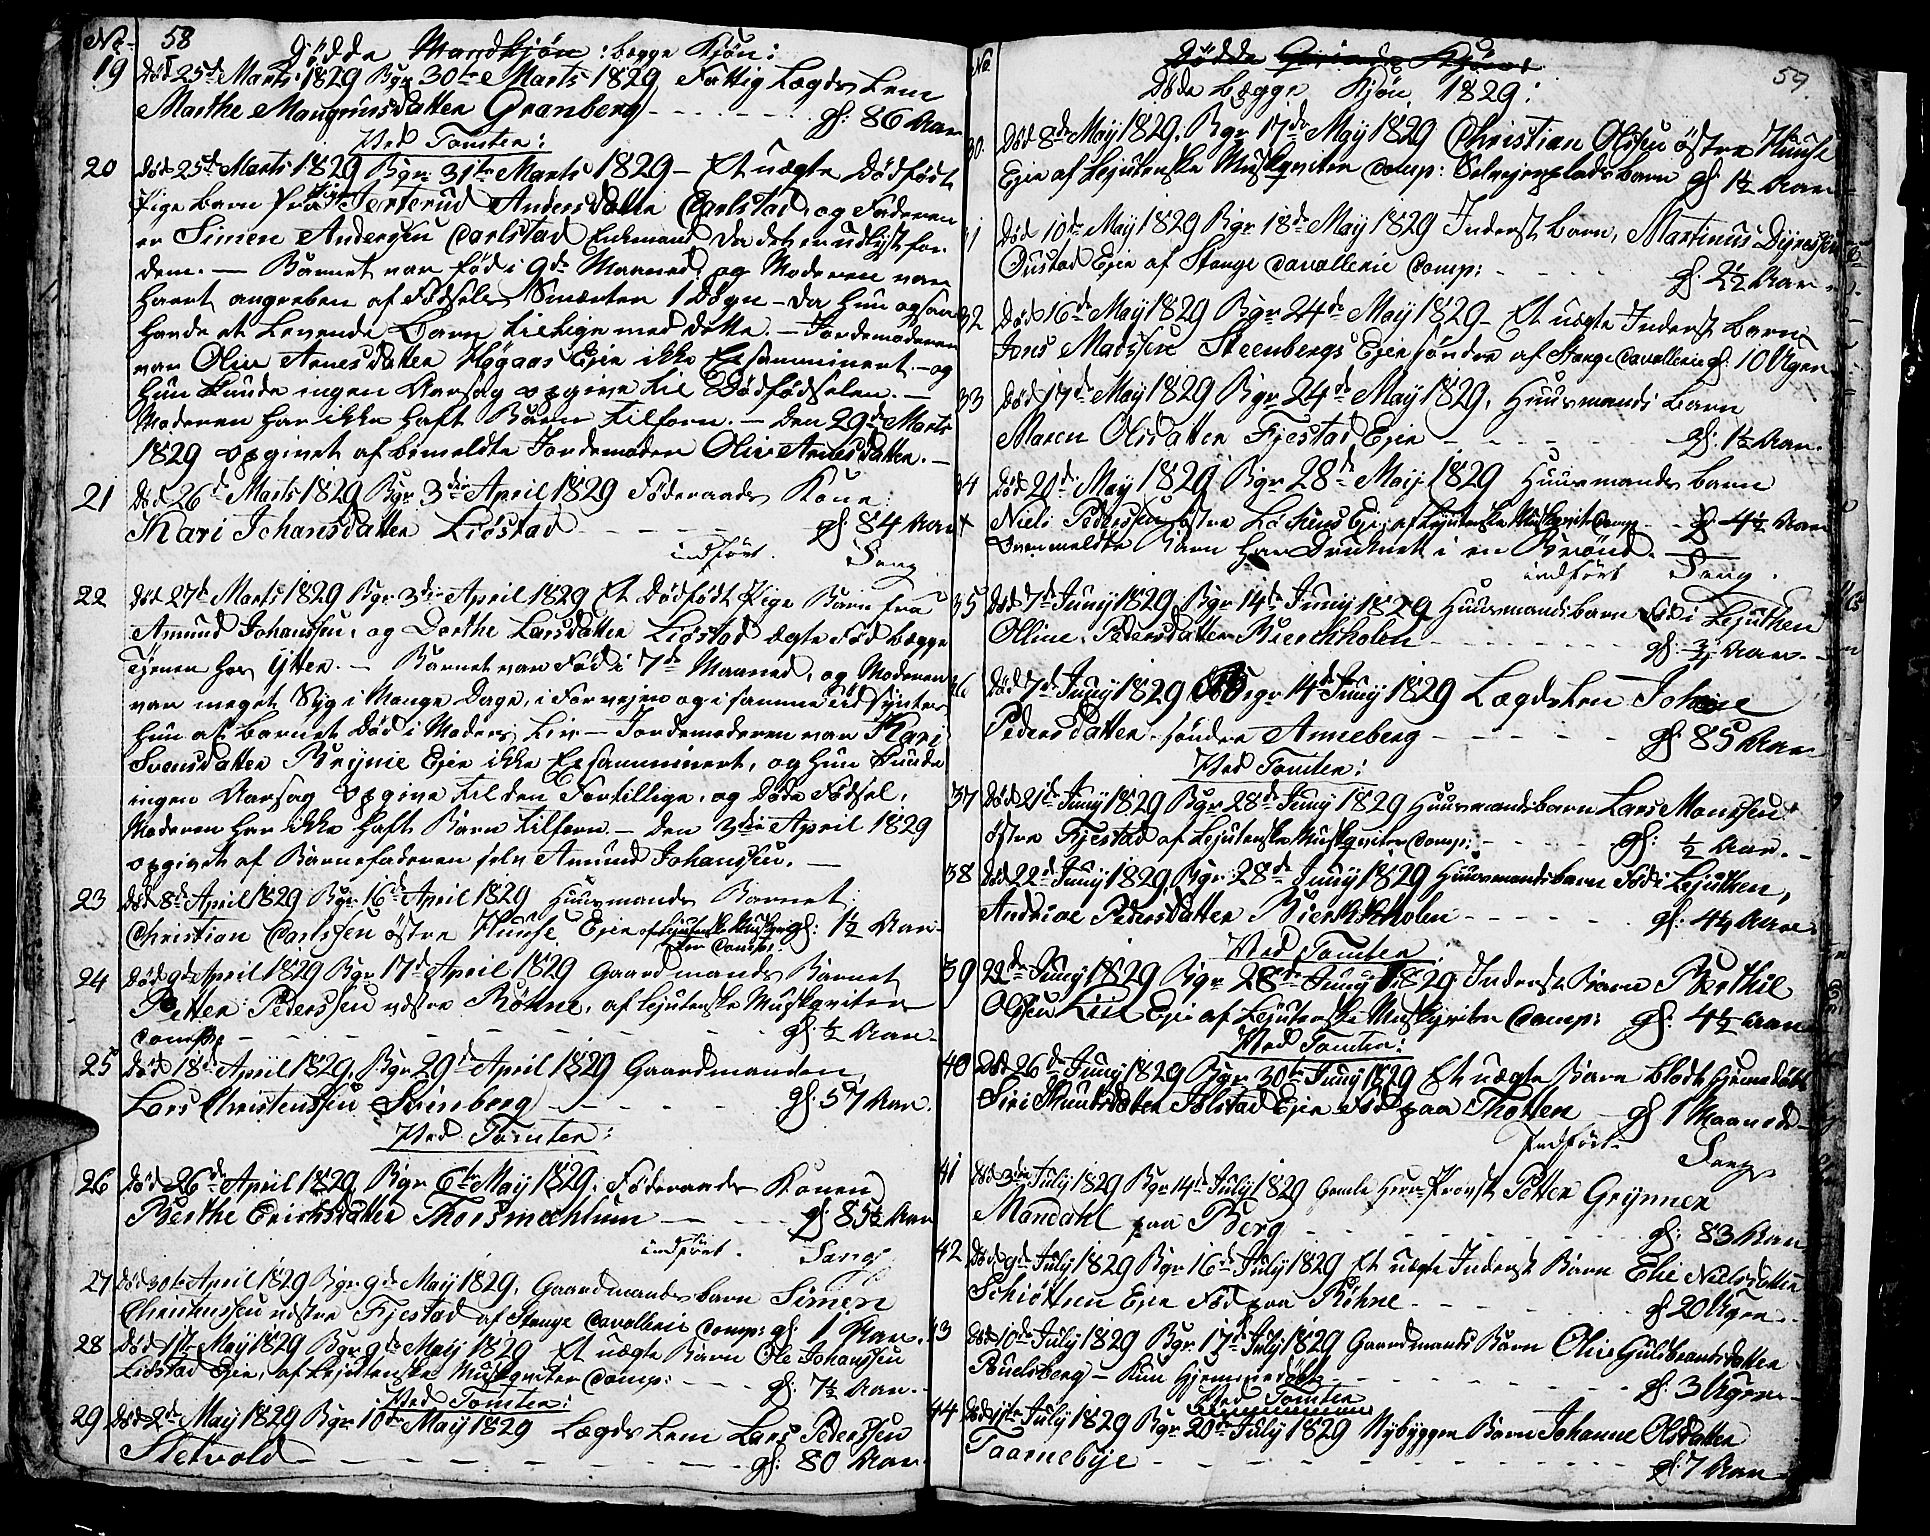 No. 58 Födde Mandkjøn : begge Kjøn :
19 Død 25d Marts 1829 Bgr. 30te Marts 1829 Fattig Lægds Lem
Marthe Mangunsdatter Granberg - - - - - gl: 86 Aar
Ved Tomten:
20 Død 25d Marts 1829 Bgr. 31te Marts 1829 - Et uægte Dødfødt
Pige Barn fra Pige Jerterud Andersdatter Carlstad, og Faderen
er Simen Andersen Carlstad Enkemand da det er udlyst for
dem. - Barnet var fød i 9de Maaned, og Moderen var
havt angreben af Fødsels Smærter 1 Døgn - da hun ogsaa
havde et Levende Barn tillige med dette. - Jordemoderen
var Olive Arnesdatter Høgaas Eje ikke Exsamminert, - og
hun kunde ingen Aarsag opgive til Dødfødselen. -
Moderen har ikke haft Børn tilforn. - Den 29de Marts
1829 opgivet af bemeldte Jordemoder Olive Arnesdatter. -
21 Død 26d Marts 1829 Bgr. 3die April 1829 Föderaads Kone:
Mari Johansdatter Lidstad - - - - gl: 84 Aar
indført. Sang
22 Død 27d Marts 1829 Bgr. 3die April 1829 Et Dødfødt Pige Barn fra
Amund Johanssen, og Dorthe Larsdatter Lidstad ægte Fød begge
Tjener hos Ytter. - Barnet var Fød i 7de Maaned, og Moderen
var meget Syg i Mange Dage, i Forvejen og i samme tid Synter
hun at Barnet Død i Moders Liv - Jordemoderen var Kari
Svensdatter Brynie Eje ikke Exsamminert, og hun kunde
ingen Aarsag opgive til den Fortillige, og Døde Fødsel.
Moderen har ikke haft Børn tilforn. - Den 3die April 1829
opgivet af Barnefaderen selv Amund Johanssen. -
23 Død 8d April 1829 Bgr. 16d April 1829 Huusmands Barnet:
Christian Carlssen østre Huuse Eje af Lejutenske Muskqviter Comp: gl: 1½ Aar
24 Død 9d April 1829 Bgr. 17d April 1829 Gaardmands Barnet
Petter Pederssen vestre Røhne, af Lejutenske Muskqviter
Comp: - - - - - - - gl: ½ Aar
25 Død 18d April 1829, Bgr. 29d April 1829 Gaardmanden
Lars Christenssen Svenberg - - - - gl: 57 Aar.
Ved Tomten:
26 Død 26d April 1829, Bgr. 6te May 1829. Föderaads Konen
Berthe Erichsdatter Thorsmæhlum - - - gl: 85½ Aar
indført. Sang
27 Død 30te April 1829 Bgr. 9d May 1829, Gaardmandsbarn Simen
Christenssen vestre Fjestad af Stange Cavallerie Comp: gl: 1 Aar.
28 Død 1ste May 1829 Bgr. 9d May 1829 Et uægte Barn Ole Johanssen
Lidstad Eje, af Lejutenske Muskqviter Comp: - - gl: 7½ Aar. -
Ved Tomten:
29 Død 2d May 1829 Bgr. 10de May 1829 Lægds Lem Lars Pederssen
Sletvold - - - - - - gl: 80 Aar
No. 59.
Dødde Qvinde Kjøn:
Døde begge Kjøn 1829:
30. Død 8de May 1829. Bgr. 17de May 1829 Christian Olssen østre Huuse
Eje af Lejutenske Muskqviter Comp: Selvejerpladsbarn gl: 1½ Aar
31 Død 10de May 1829 Bgr. 18de May 1829 Inderst Barn, Martinus
Oustad Eje af Stange Cavallerie Comp: - - - - gl: 2½ Aar
32 Død 16de May 1829 Bgr. 24de May 1829 - Et uægte Inderst barn
Jens Madssen Steenbergs Eje søndre af Stange Cavallerie gl: 10 Uger
33 Død 17de May 1829 Bgr. 24de May 1829. Huusmands barn
Maren Olsdatter Fjestad Eje - - - - - gl: 1½ Aar.
34 Død 20de May 1829 Bgr. 28de May 1829 Huusmands barn
x Niels Pederssen østre Løckens Eje, af Lejutenske Muskqvit Comp - gl: 4½ Aar
Ovenmeldte Barn har Druknet i en Brønd. -
indført Sang.
35 Død 7de Juny 1829, Bgr. 14de Juny 1829 Huusmandsbarn Fød i Lejuthen
Olline Pedersdatter Bierchholen - - - - - gl: ¾ Aar. -
36 Død 7de Juny 1829 Bgr. 14de Juny 1829 Lægdslem Johane
Pedersdatter søndre Anneberg - - - - - gl: 85 Aar
Ved Tomten:
37 Død 21de Juny 1829 Bgr. 28de Juny 1829 Huusmandsbarn Lars Monssen
østre Fjestad af Lejutenske Muskqviter Comp: - - - - gl: ½ Aar. -
38 Død 22de Juny 1829, Bgr. 28de Juny 1829 Huusmandsbarn Fød i Lejuthen,
Andrine Pedersdatter Bierkholen - - - - - gl: 4¼ Aar.
Ved Tomten
39 22de Juny 1829 Bgr. 28de Juny 1829 Inderste Barn Berthil
Olssen Liie Eje af Lejutenske Muskqviter Comp: gl: 4½ Aar
Ved Tomten:
40 Død 26de Juny 1829 Bgr. 30te Juny 1829 Et uægte Barn blodt hjemedøbt
Siri Knudsdatter Jølstad Eje Fød paa Thotten gl: 1 Maaned
Indført - Sang
41 Død 3die July 1829 Bgr. 14d July 1829 Gamle Herr Provst Petter Grynner
Mandahl paa Berg - - - - - gl: 83 Aar
42 Død 9de July 1829 Bgr. 16de July 1829 Et uægte Inderst Barn Elie Nielsdatter
Schiøttsen Eje Fød paa Röhne - - - - - gl: 20 Uger. -
43 Død 10de July 1829 Bgr. 17de July 1829 Gaardmands Barn Olive Guldbrandsdatter
Pouelsberg - Kun Hjemmedøbt - - - - gl: 3 Uger. -
Ved Tomten
44 Død 11te July 1829 Bgr. 20de July 1829 Nybygger Barn Johanne Olsdatter
Taarnebye - - - - - - gl: 7 Aar